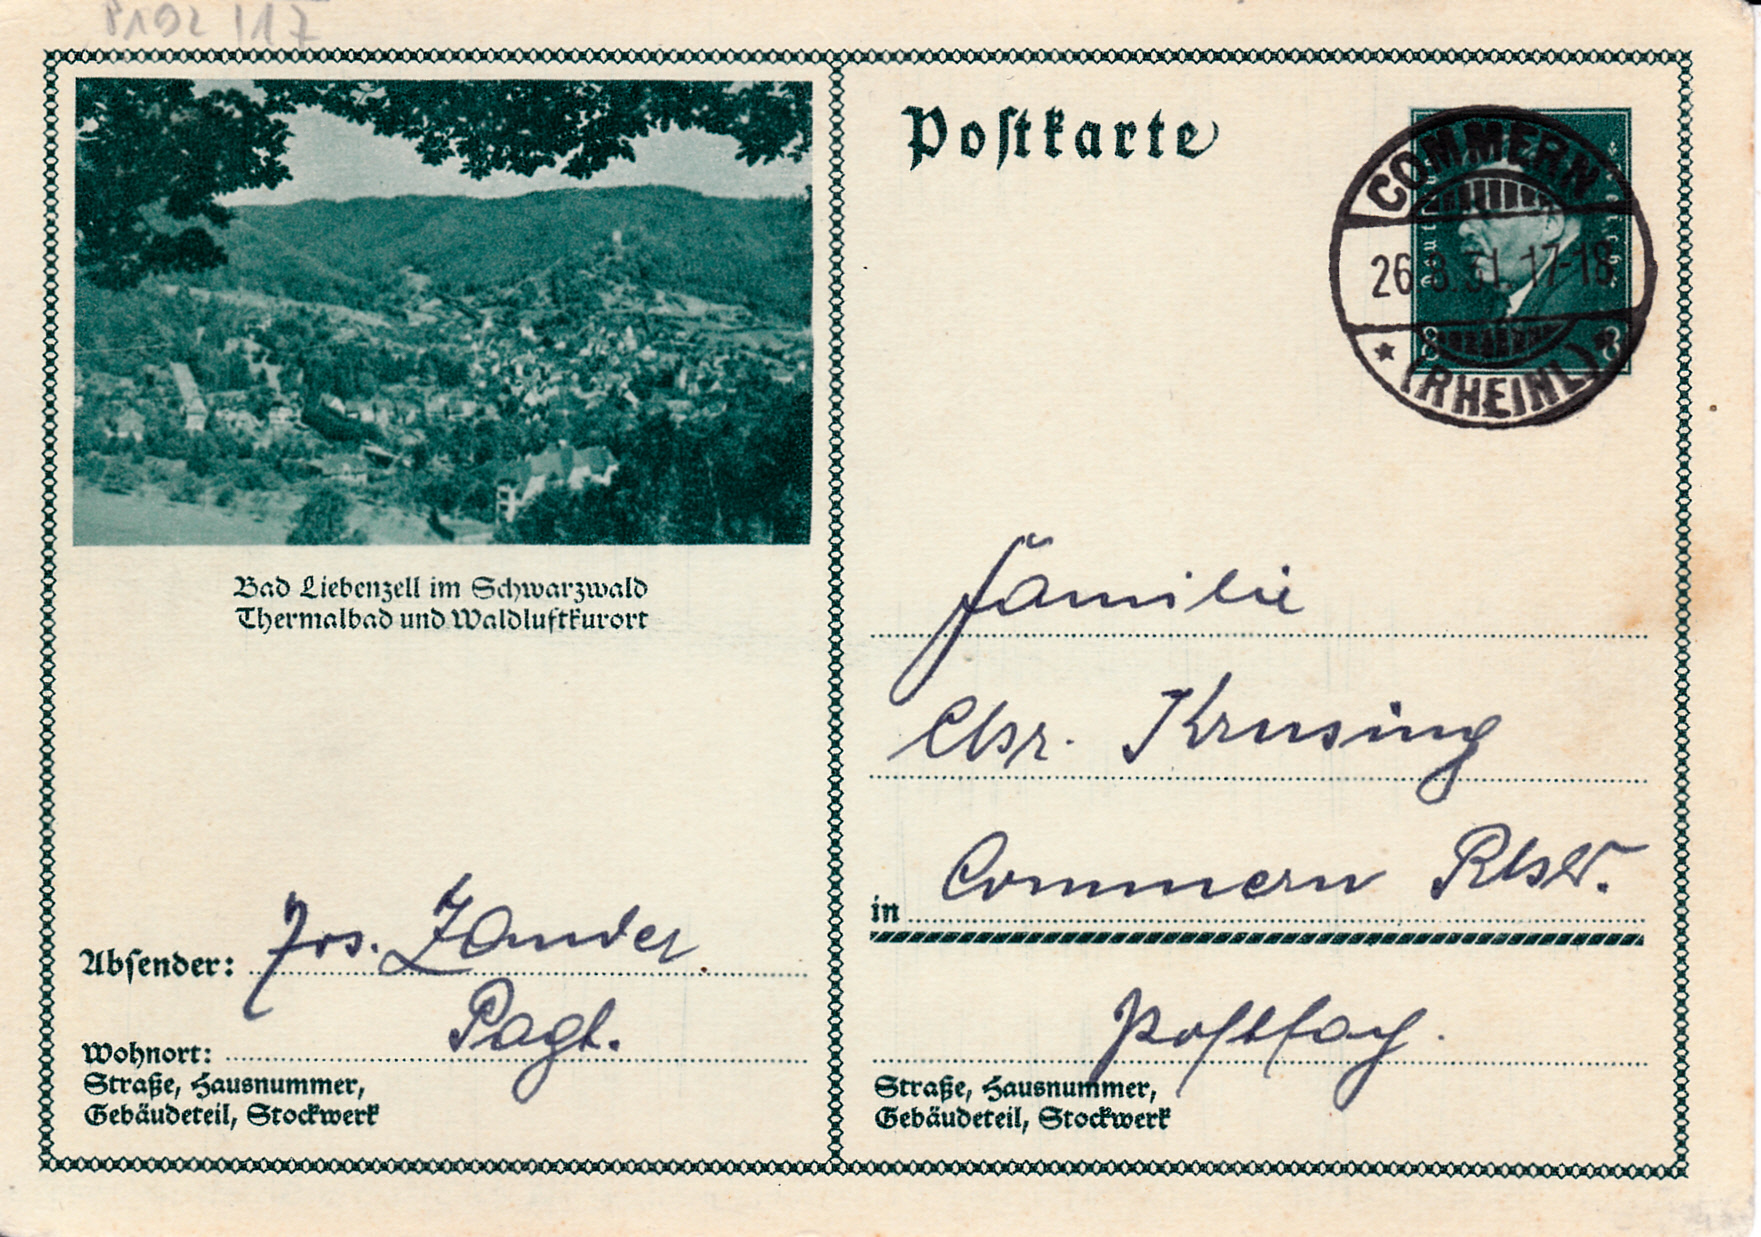 P192 117
Bad Liebenzell im Schwarzwald
Thermalbad und Waldluftkurort
Absender: Jos. Zander
Wohnort: Pagt.
Straße, Hausnummer,
Gebäudeteil, Stockwerk
Postkarte
COMMERN
26.8.31. 17-18
(RHEINL)
8 8
Familie
Chr. Krusing
in Commern
Straße, Hausnummer,
Gebäudeteil, Stockwerk